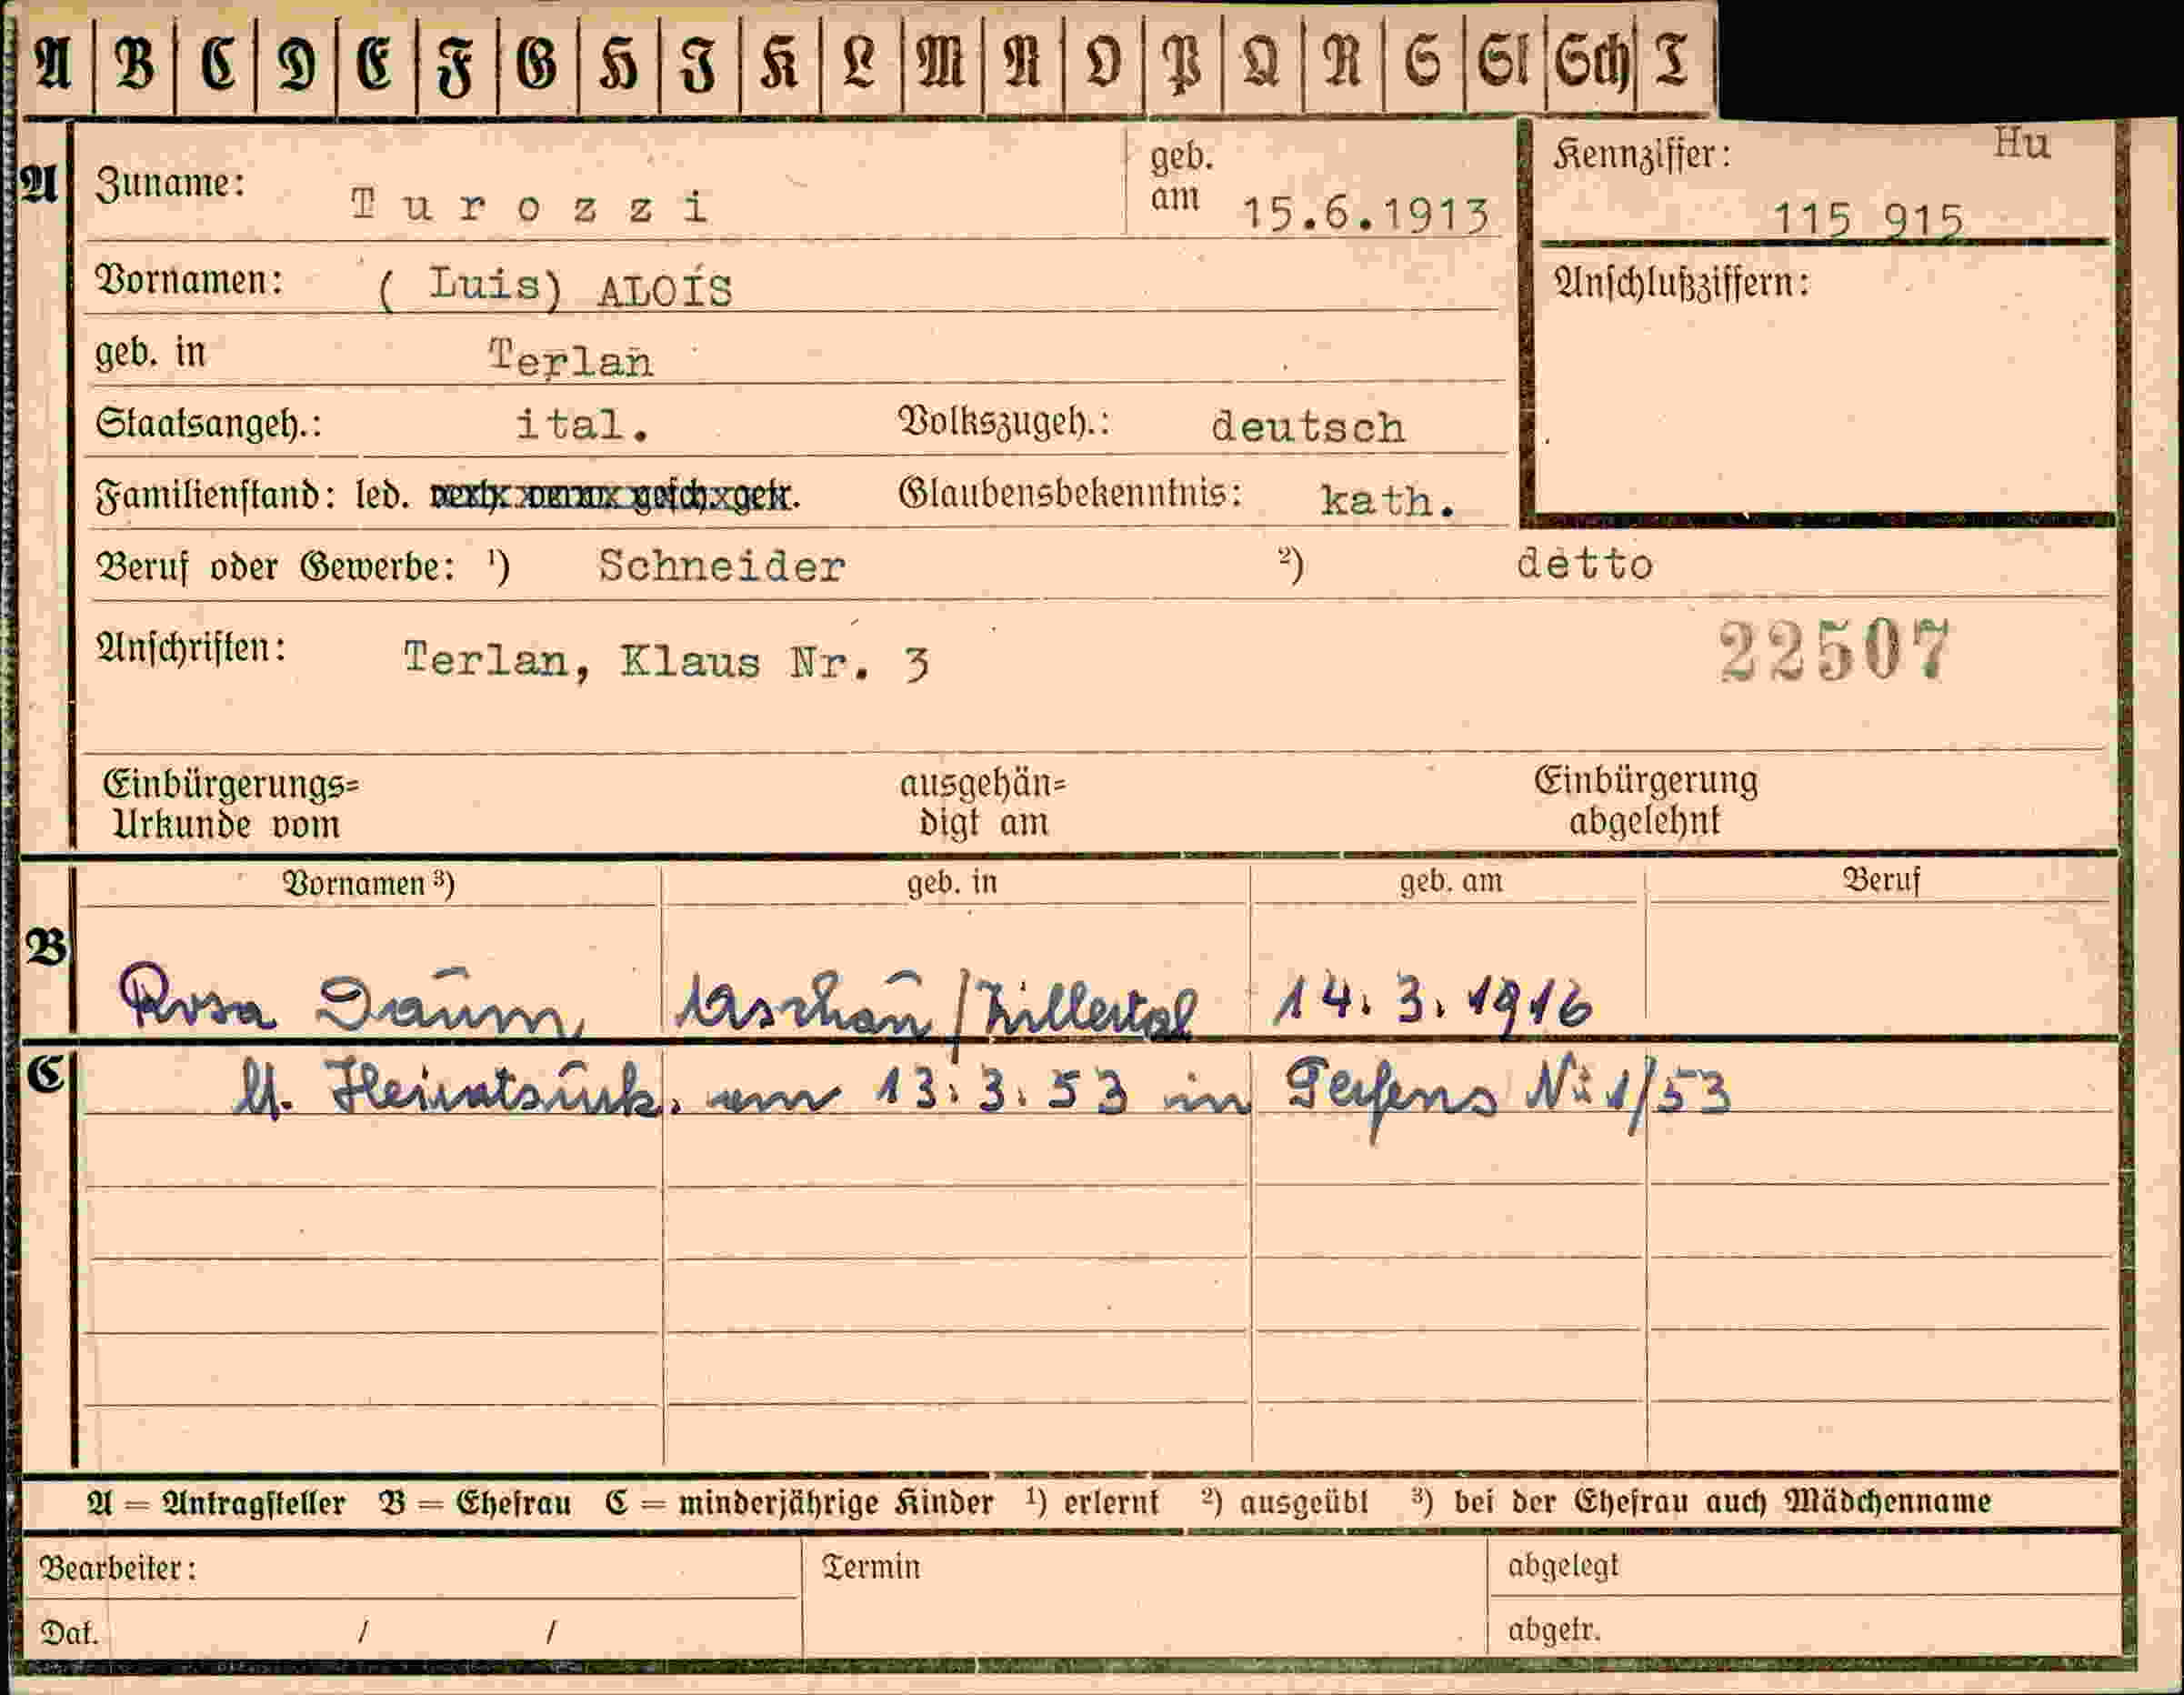 A B C D E F G H J K L M N O P Q R S St Sch T
A Zuname: Turozzi geb. am 15.6.1913
Kennziffer: Hu
115 915
Vornamen: ( Luis) ALOIS
Anschlußziffern:
geb. in Terlan
Staatsangeh.: ital. Volkszugeh.: deutsch
Familienstand: led. verh. verw. gesch. getr. Glaubensbekenntnis: kath.
Beruf oder Gewerbe: ¹) Schneider ²) detto
Anschriften: Terlan, Klaus Nr. 3 22507
Einbürgerungs= ausgehän= Einbürgerung
Urkunde vom digt am abgelehnt
Vornamen ³) geb. in geb. am Beruf
B
Rosa Daum Aschau/Zillertal 14. 3. 1916
C lt. Heiratsurk. vom 13.3.53 in Terfens Nr 1/53
A = Antragsteller B = Ehefrau C = minderjährige Kinder ¹) erlernt ²) ausgeübt ³) bei der Ehefrau auch Mädchenname
Bearbeiter: Termin abgelegt
Dat. / / abgetr.